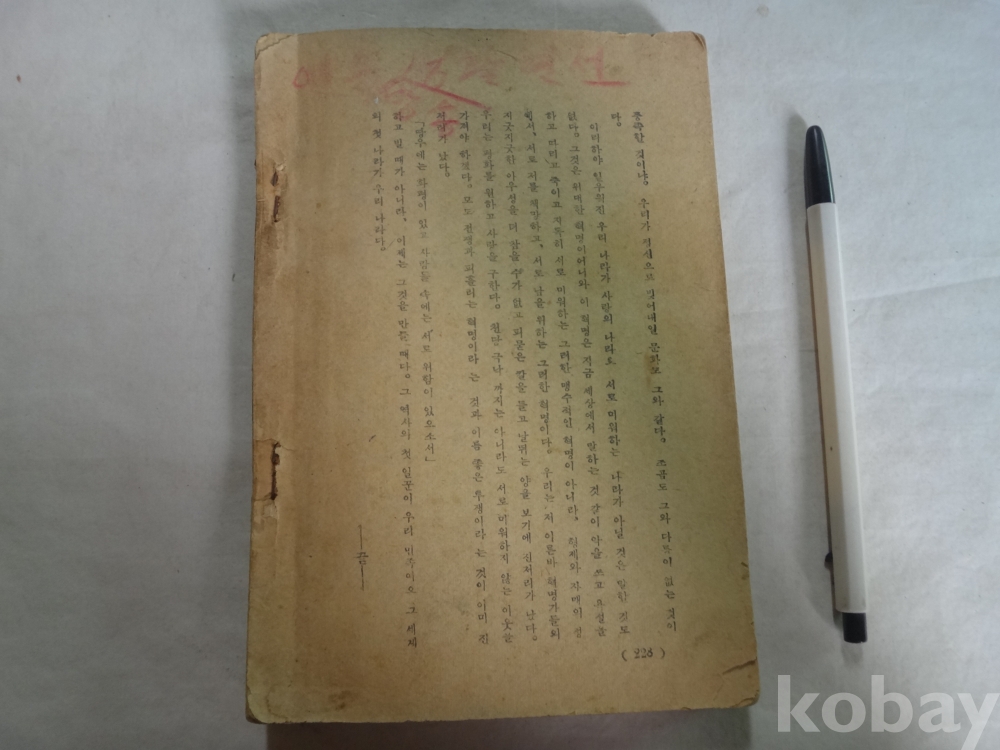 풍족할 것이냐. 우리가 정신으로 빚어내일 문화도 그와 같다. 조곰도 그와 다름이 없는 것이
다.
이리하야 일우워진 우리 나라가 사랑의 나라요 서로 미워하는 나라가 아닐 것은 말할 것도
없다. 그것은 위대한 혁명이어니와 이 혁명은 지금 세상에서 말하는 것 같이 악을 쓰고 욕설을
하고 때리고 죽이고 지독히 서로 미워하는 그러한 맹수적인 혁명이 아니라, 형제와 자매의 정
에서, 서로 저를 책망하고, 서로 남을 위하는 그러한 혁명이다. 우리는 저 이른바 혁명가들의
지긋지긋한 아우성을 더 참을 수가 없고 피묻은 칼을 들고 날뛰는 양을 보기에 진저리가 났다.
우리는 평화를 원하고 사랑을 구한다. 천당 극낙 까지는 아니라도 서로 미워하지 않는 이웃을
가져야 하겠다. 또 전쟁과 피흘리는 혁명이라 는 것과 이름 좋은 투쟁이라 는 것이 이미 진
저리가 났다.
「땅우에는 화평이 있고 사람들 속에는 서로 위함이 있으소서」
하고 빌 때가 아니라. 이제는 그것을 만들 때다. 그 역사의 첫 일꾼이 우리 민족이오 그 세계
의 첫 나라가 우리 나라다.
—끝—
(226)
kobay